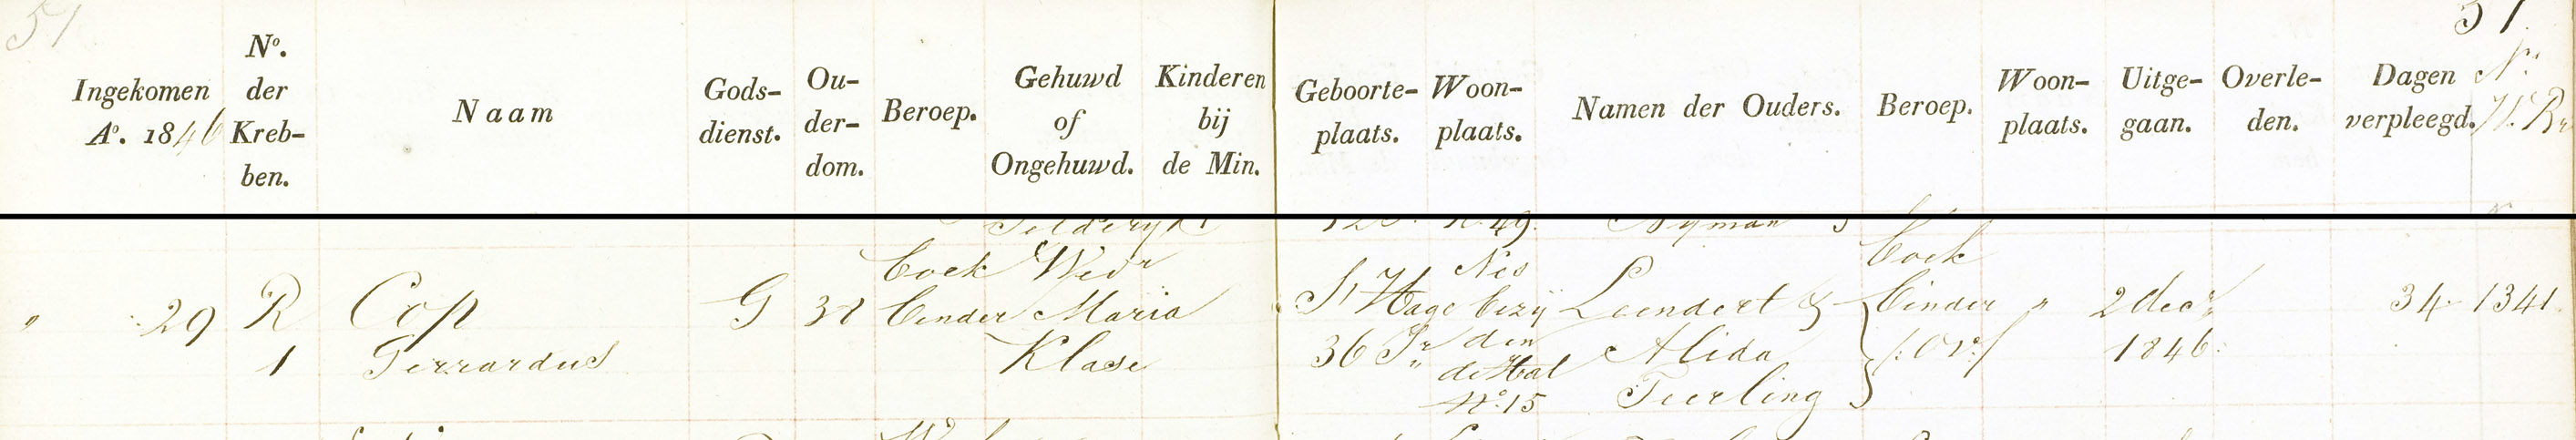 51
51
Ingekomen Ao. 1846
No. der Krebben.
Naam
Godsdienst.
Ouderdom.
Beroep.
Gehuwd of Ongehuwd.
Kinderen bij de Min.
Geboorteplaats.
Woonplaats.
Namen der Ouders.
Beroep.
Woonplaats.
Uitgegaan.
Overleden.
Dagen verpleegd.
No.
No 49.
Nyman
" 29
R
1
Cop
Gerrardus
G
38
Boek
binder
Wedr
Maria
Klase
S Hage
36 Jr
Nes
bezij
den
de Hal
No. 15
Leendert &
Alida
Teerling
Boek
binder
/: Ov :/
"
2 decr
1846.
34
1341.